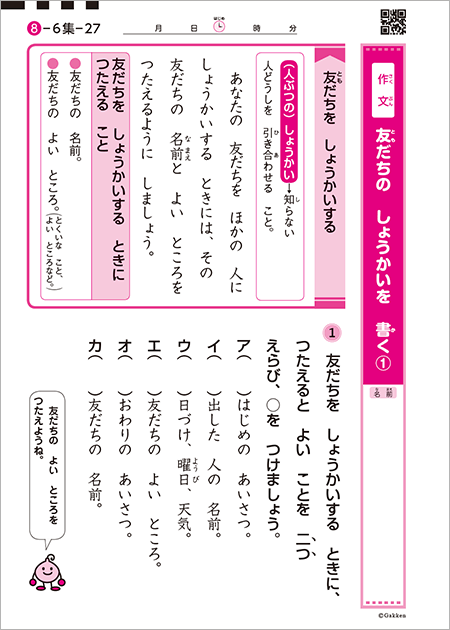 8-6集-27
月 日 はじめ 時 分
作文 さくぶん
友だちの しょうかいを 書く① とも か
名前 なまえ
友だちを しょうかいする とも
(人ぶつの)しょうかい→知らない し
人どうしを 引き合わせる こと。 ひ あ
あなたの 友だちを ほかの 人に
しょうかいする ときには、その
友だちの 名前と よい ところを なまえ
つたえるように しましょう。
友だちを しょうかいする ときに
つたえる こと
●友だちの 名前。
●友だちの よい ところ。(とくいな こと、
よい ところなど。)
1 友だちを しょうかいする ときに、
つたえると よい ことを 二つ
えらび、○を つけましょう。
ア( )はじめの あいさつ。
イ( )出した 人の 名前。
ウ( )日づけ、曜日、天気。 ようび
エ( )友だちの よい ところ。
オ( )おわりの あいさつ。
カ( )友だちの 名前。
友だちの よい ところを
つたえようね。
©Gakken